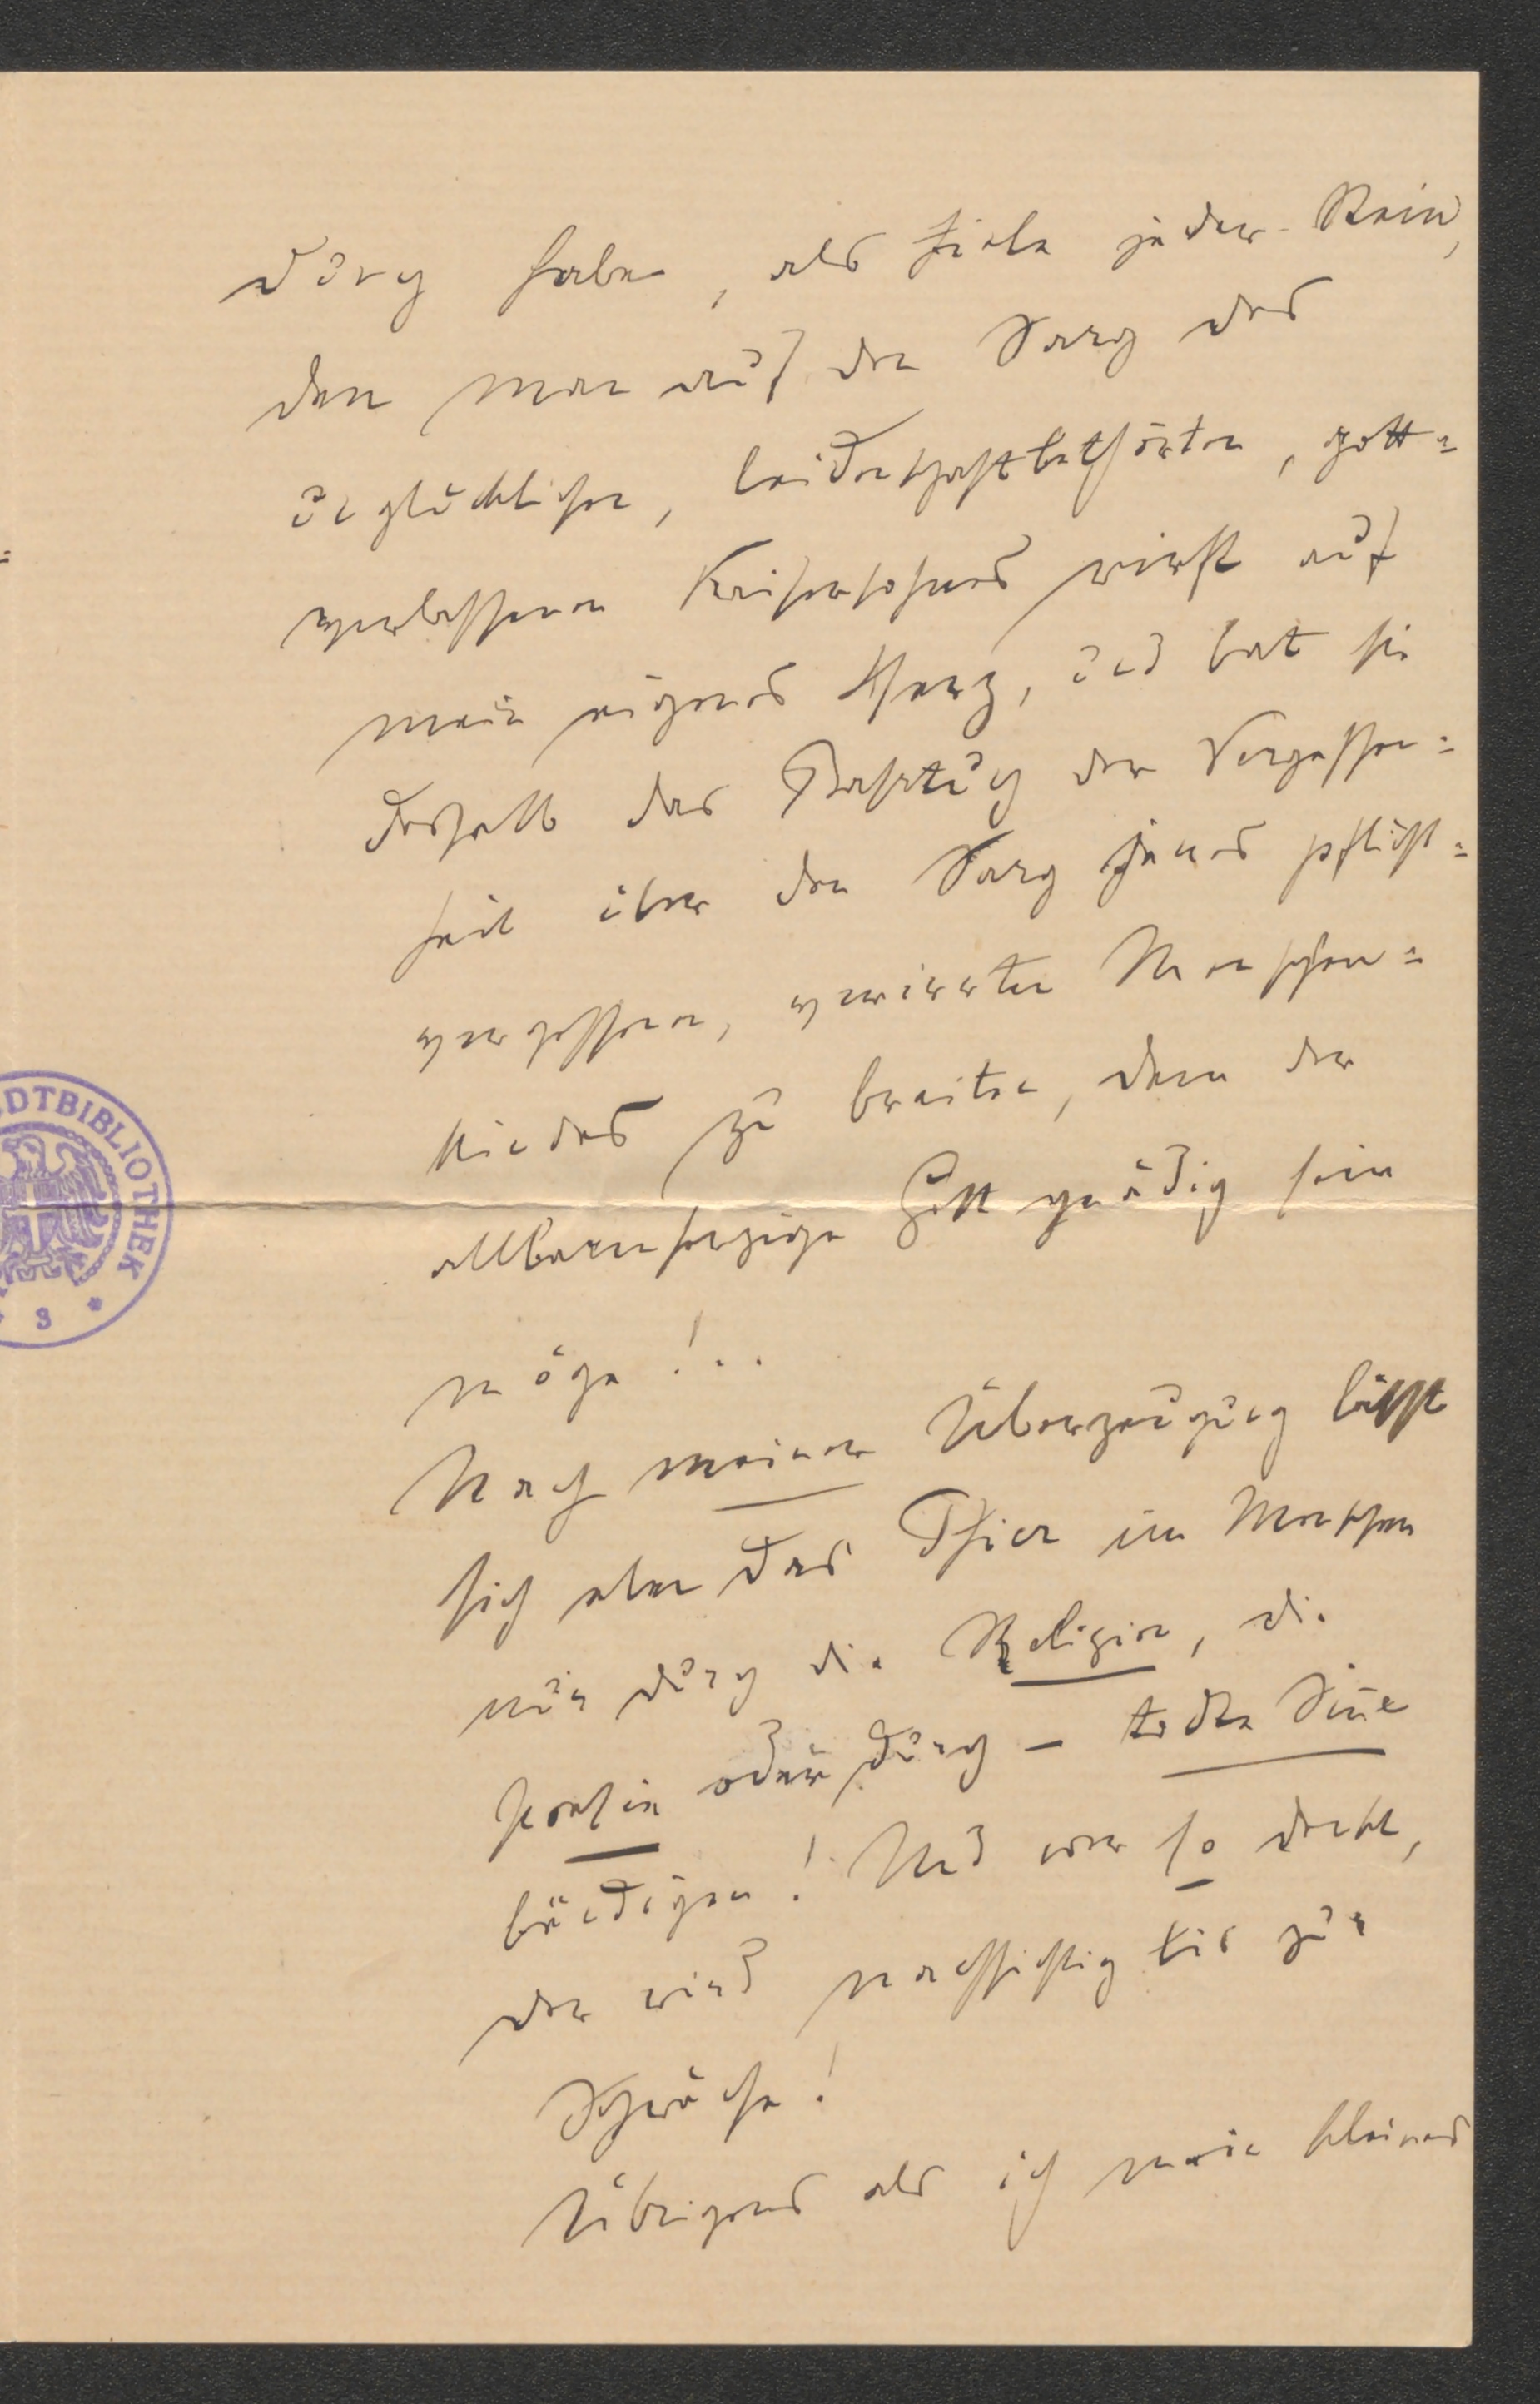 durch habe, als fiele jeder Stein,
den man auf den Sarg des
unglücklichen, leidenschaftbethörten, gott=
verlassenen Kaisersohnes wirft auf
mein eigenes Herz, und bat sie
deshalb das Bahrtuch der Vergessen=
heit über den Sarg jenes pflicht=
vergessenen, verirrten Menschen=
kindes zu breiten, dem der
allbarmherzige Gott gnädig sein
möge!..
Nach meiner Überzeugung lässt
sich aber das Thier im Menschen
nur durch die Religion, die
Poesie oder durch – todte Sinne
bändigen! Und wer so denkt,
der wird nachsichtig bis zur
Schwäche!
Übrigens als ich mein kleines
STADTBIBLIOTHEK